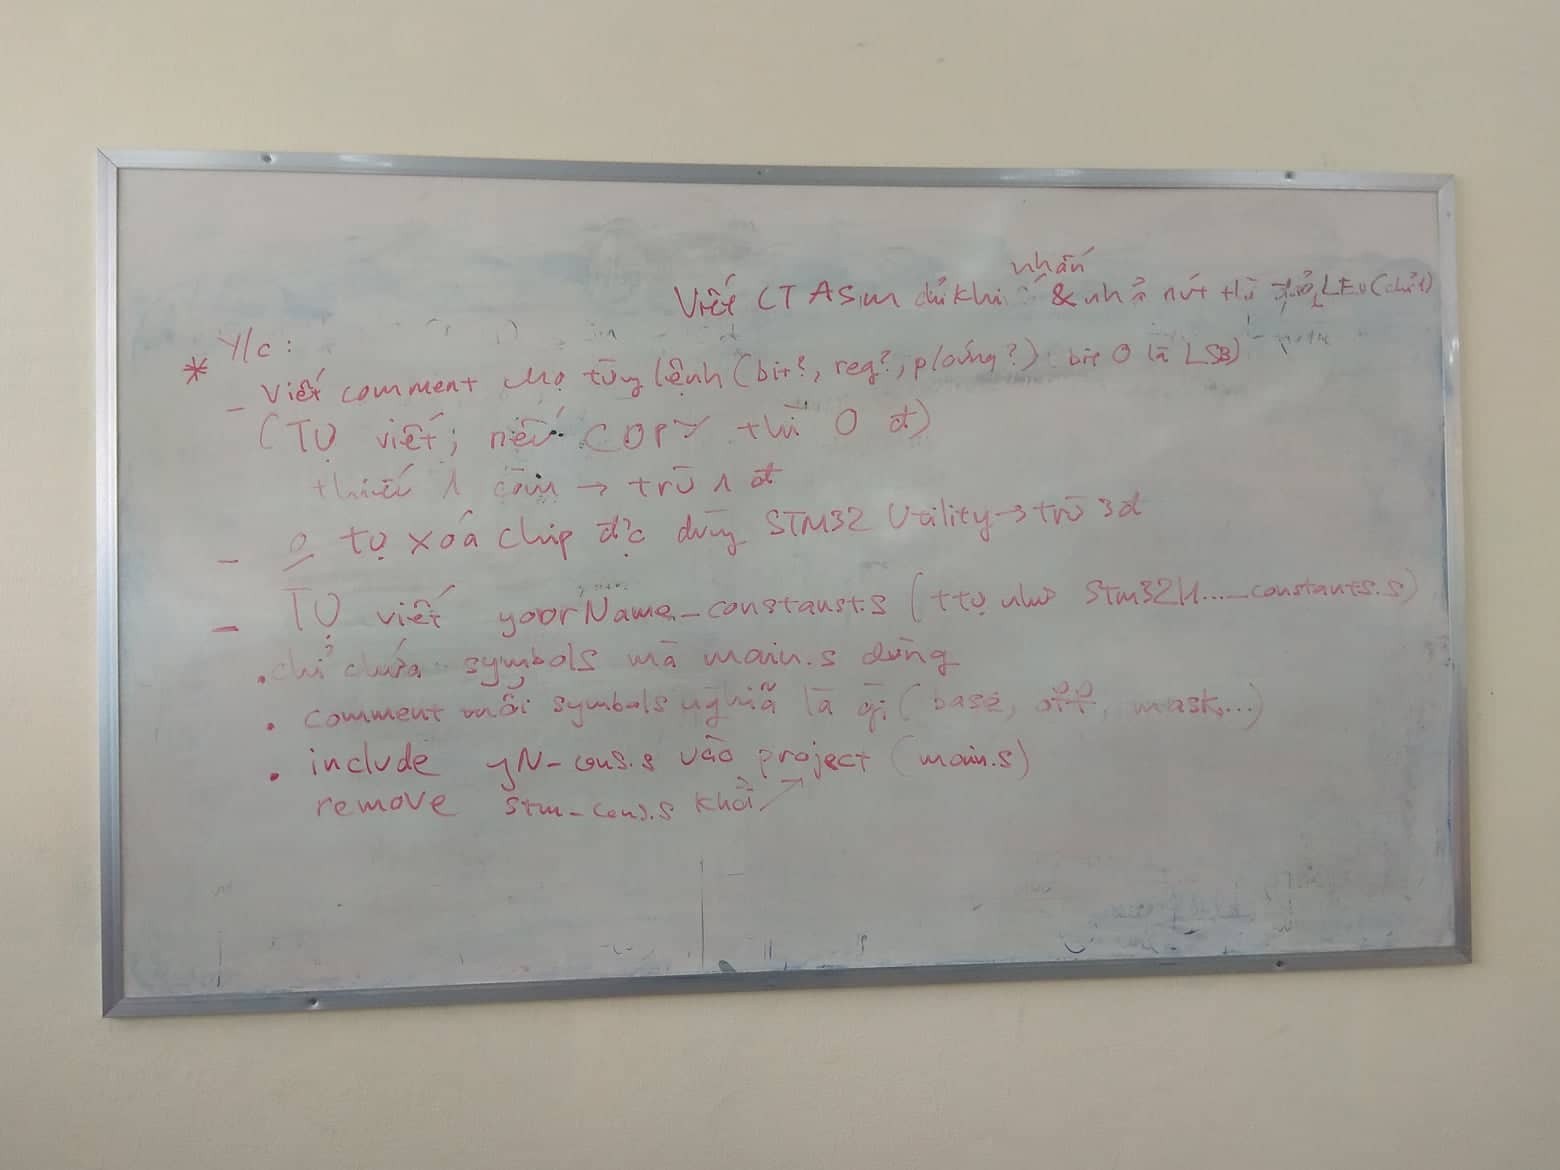 nhấn
Viết CT ASm để khi & nhả nút thì LED (chỉ 1)
* Y/c :
- Viết comment cho từng lệnh (bit?, reg?, p/ứng?) bit 0 là LSB)
(Tự viết; nếu COPY thì 0 đ)
thiếu 1 câu → trừ 1 đ
- 0 tự xóa chip đc dùng STM32 Utility → trừ 3đ
- Tự viết yoorName_constanst.s (ttự như Stm32l1...._constants.s)
. chỉ chứa symbols mà main.s dùng
. comment mỗi symbols nghĩa là gì (base, off, mask,...)
. include yN-cons.s vào project (main.s)
remove stm-cons.s khỏi ↗